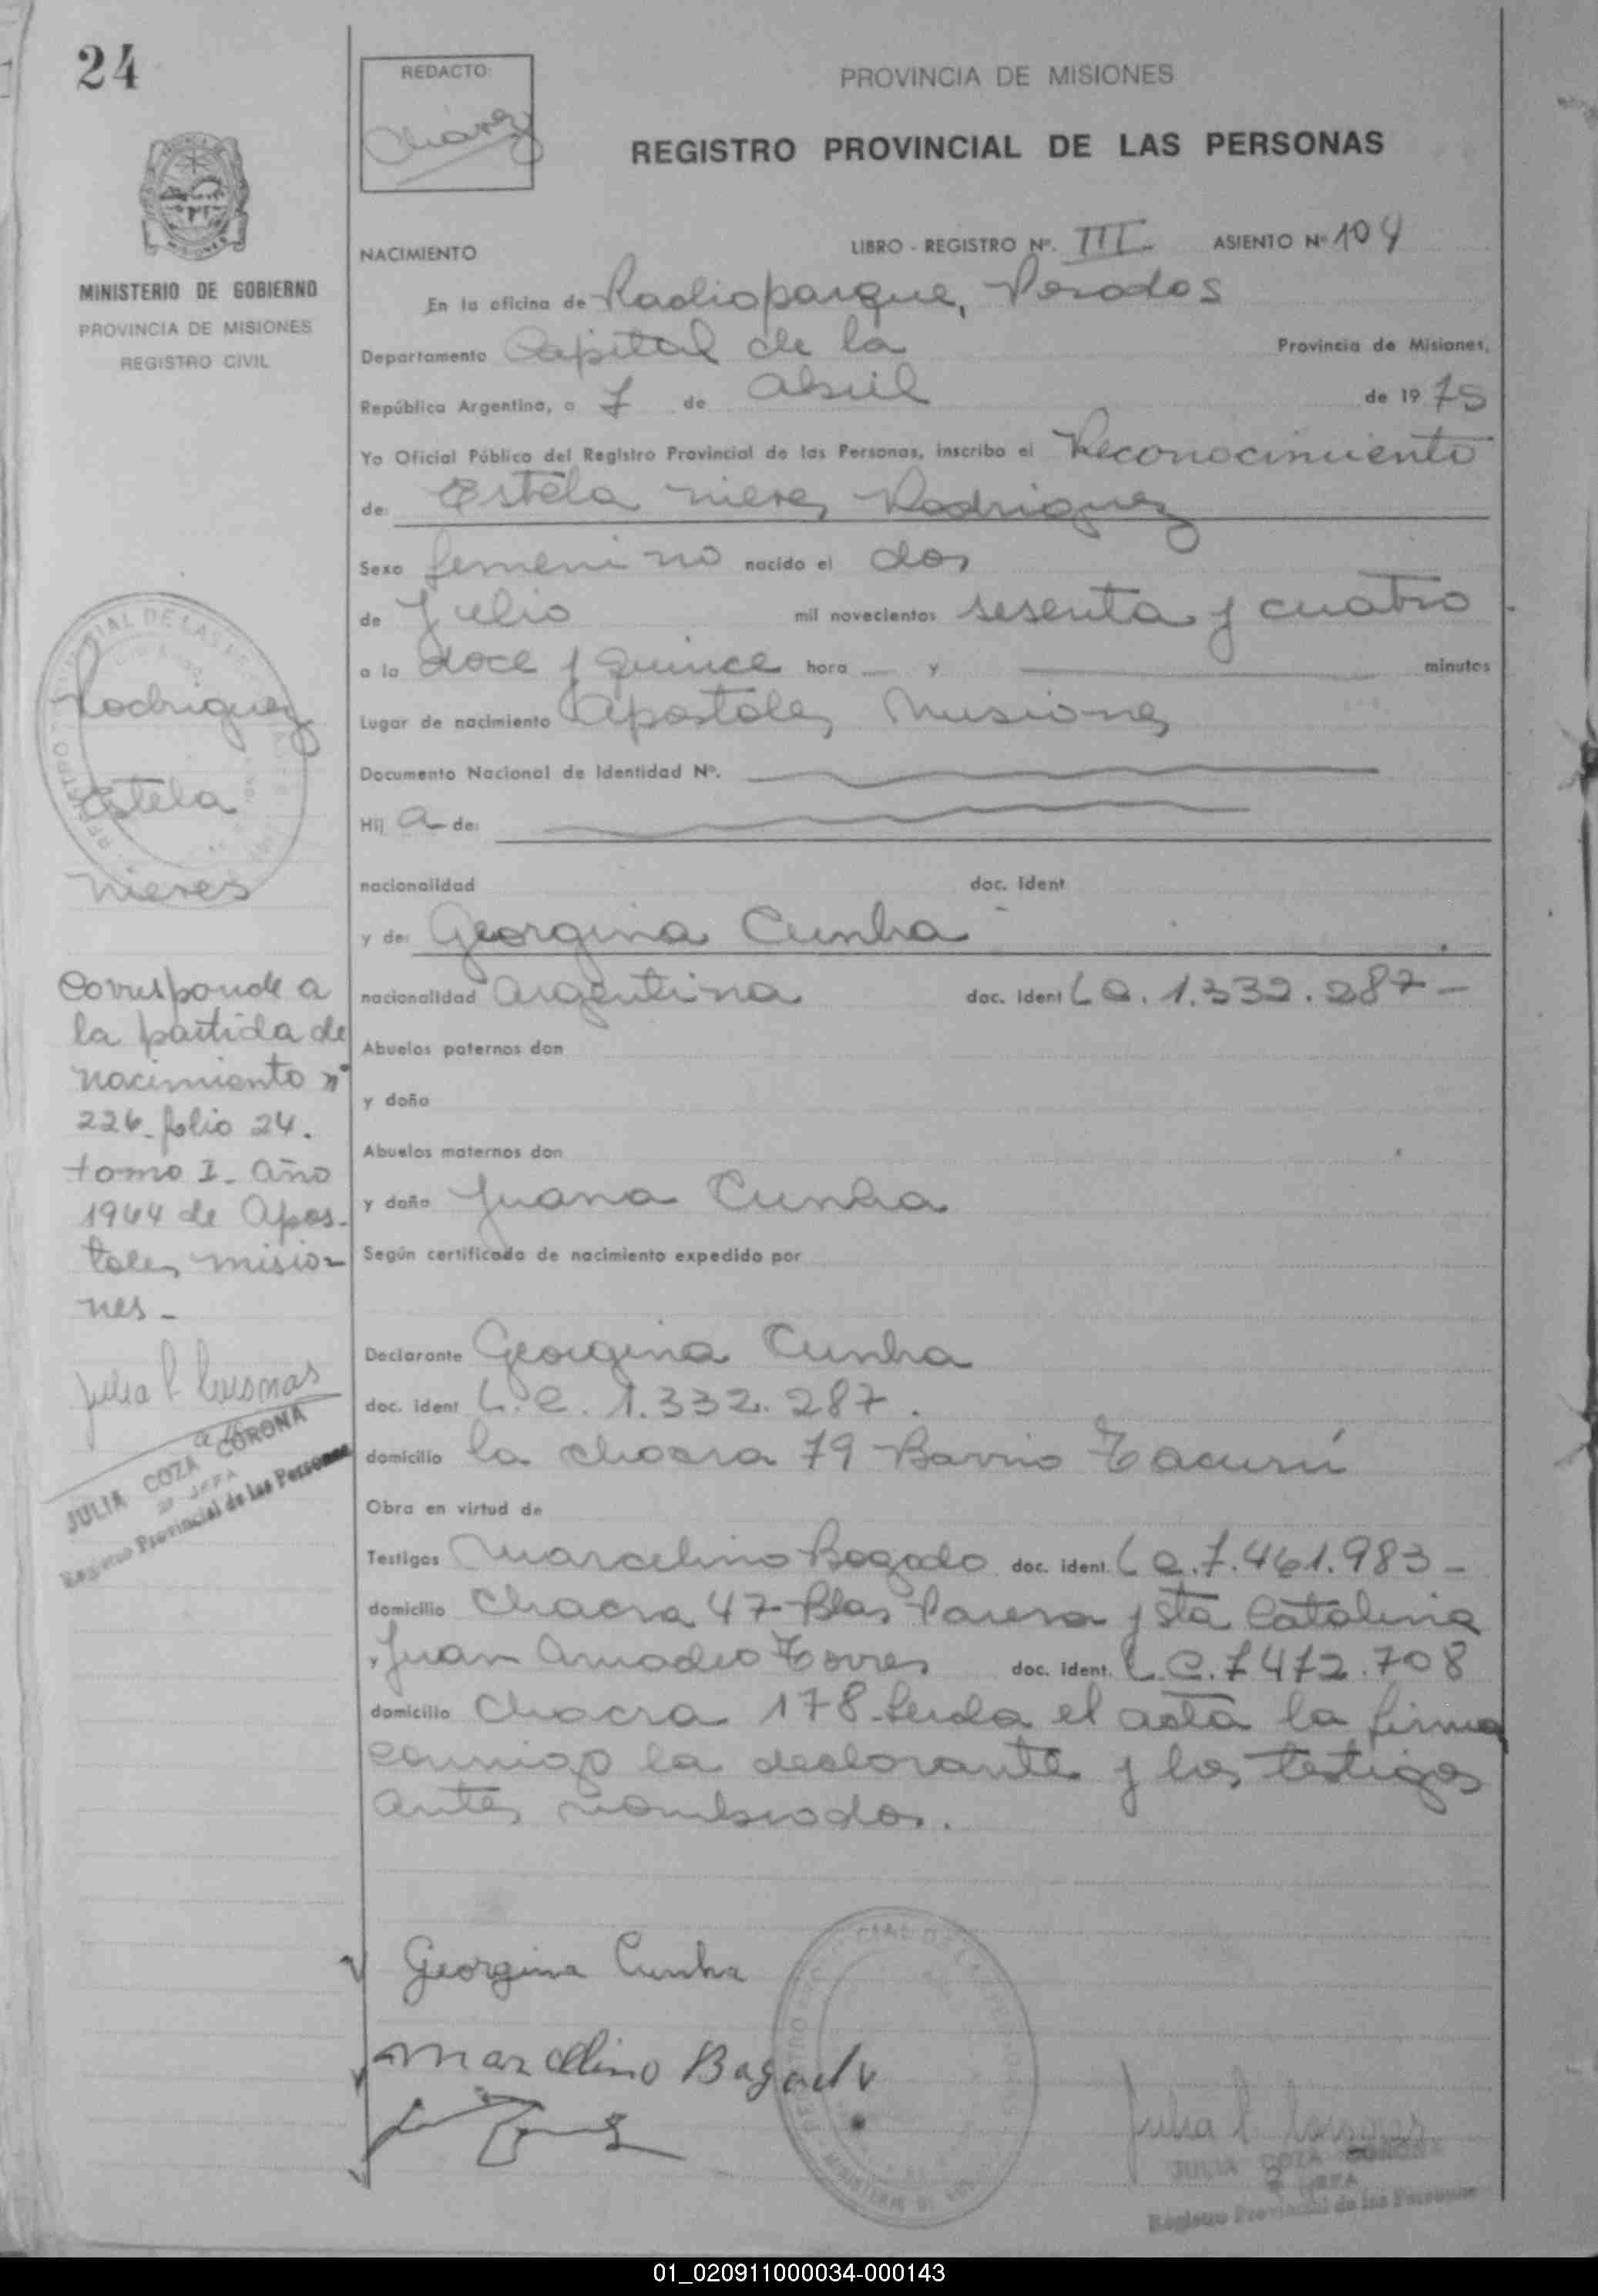 24
REDACTO:
Chávez
PROVINCIA DE MISIONES
REGISTRO PROVINCIAL DE LAS PERSONAS
MINISTERIO DE GOBIERNO
PROVINCIA DE MISIONES
REGISTRO CIVIL
NACIMIENTO LIBRO - REGISTRO Nº. III ASIENTO Nº 104
En la oficina de Radioparque, Posadas
Departamento Capital de la Provincia de Misiones,
República Argentina, a 7 de Abril de 1975
Yo Oficial Público del Registro Provincial de las Personas, inscribo el Reconocimiento
de: Estela Nieves Rodriguez
Sexo femenino nacido el dos
de Julio mil novecientos sesenta y cuatro
a la doce y quince hora y minutos
Lugar de nacimiento Apostoles Misiones
Documento Nacional de Identidad Nº.
Hij a de:
nacionalidad doc. ident
y de: Georgina Cunha
nacionalidad Argentina doc. ident L C. 1.332.287-
Abuelos paternos don
y doña
Abuelos maternos don
y doña Juana Cunha
Según certificado de nacimiento expedido por
Declarante Georgina Cunha
doc. ident L.C. 1.332.287.
domicilio la chacra 79 Barrio Tacurú
Obra en virtud de
Testigos Marcelino Bogado doc. ident. L e.7.461.983-
domicilio Chacra 47 Blas Parera y sta Catalina
y Juan Amadeo Torres doc. ident. L e.7472.708
domicilio Chacra 178. Leida el acta la firma
conmigo la declarante y los testigos
antes nombrados.
Rodriguez
Estela
Nieves
Corresponde a
la partida de
nacimiento nº
226 folio 24.
tomo I. Año
1964 de Apos-
toles mision
nes-
JULIA COZA CORONA
2º JEFA
Registro Provincial de las Personas
Georgina Cunha
Marcelino Bogado
JULIA COZA CORONA
2º JEFA
Registro Provincial de las Personas
01_020911000034-000143